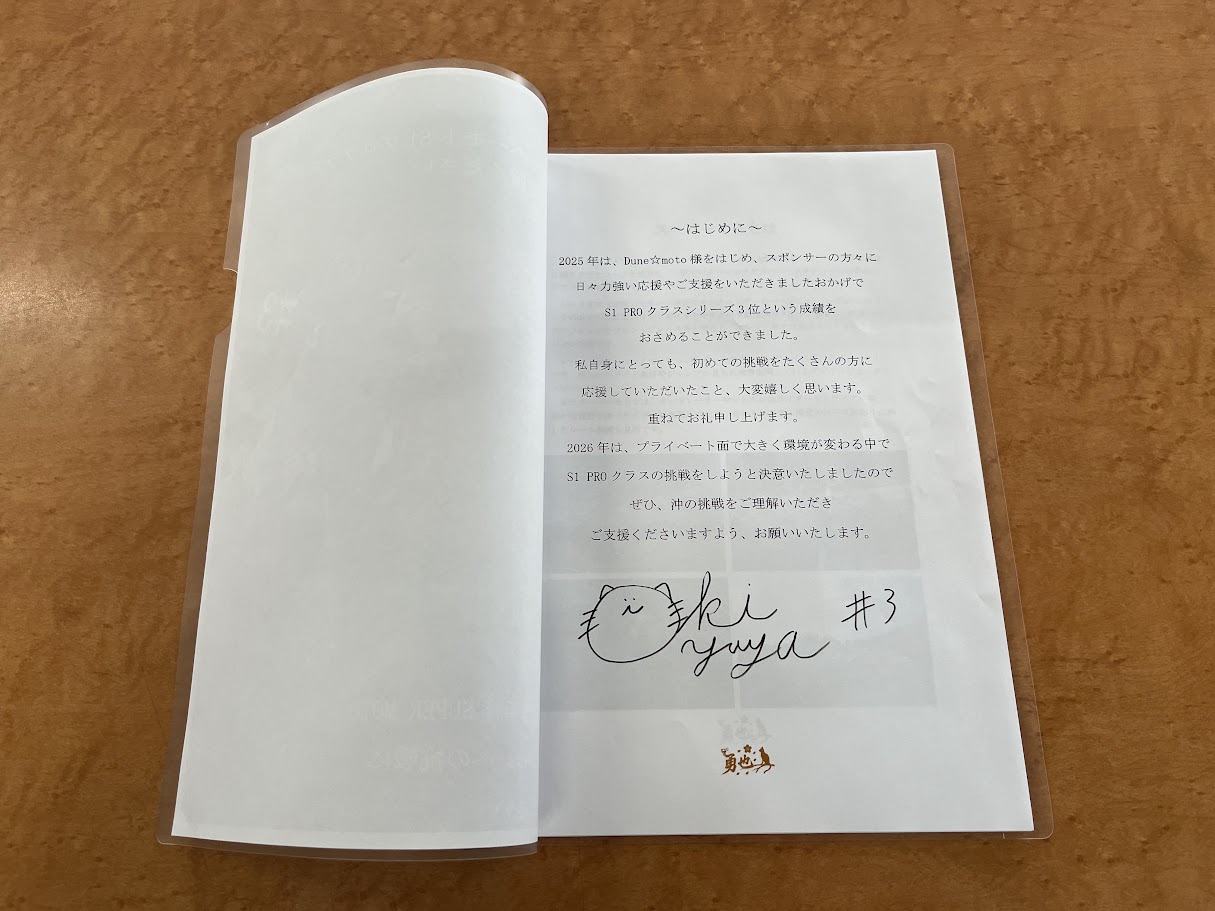 ～はじめに～
2025年は、Dune☆moto様をはじめ、スポンサーの方々に
日々力強い応援やご支援をいただきましたおかげで
S1 PROクラスシリーズ3位という成績を
おさめることができました。
私自身にとっても、初めての挑戦をたくさんの方に
応援していただいたこと、大変嬉しく思います。
重ねてお礼申し上げます。
2026年は、プライベート面で大きく環境が変わる中で
S1 PROクラスの挑戦をしようと決意いたしましたので
ぜひ、沖の挑戦をご理解いただき
ご支援くださいますよう、お願いいたします。
Oki #3
yuya
勇也